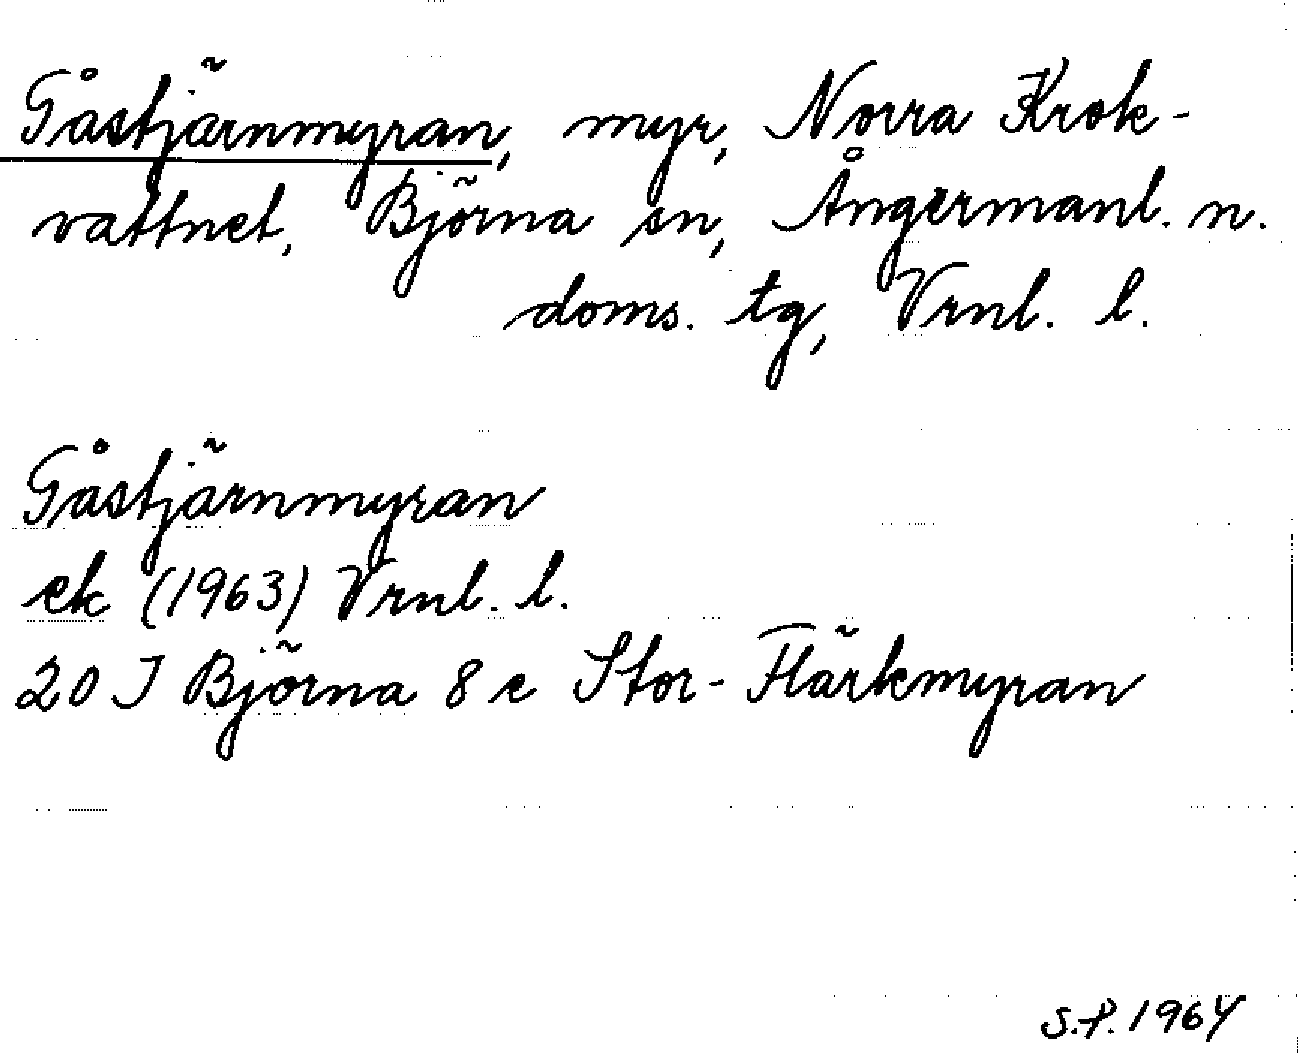 Gåstjärnmyran, myr, Norra Krok-
vattnet, Björna sn, Ångermanl. n.
doms. tg, Vrnl. l.
Gåstjärnmyran
ek (1963) Vrnl. l.
20 J Björna 8 e Stor-Flärkmyran
S.P. 1964